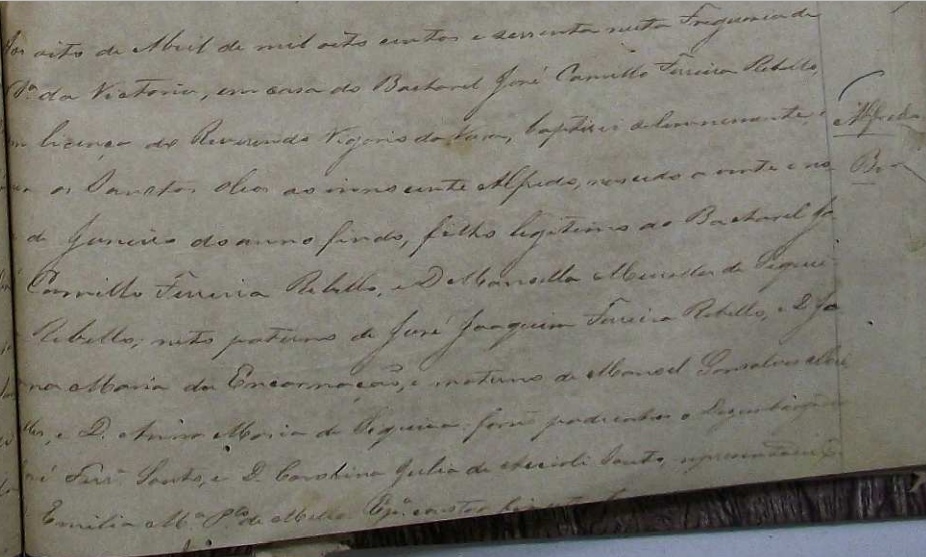 Aos oito de Abril de mil oito centos e sessenta nesta Freguesia de
Sª da Victoria, em casa do Bacharel José Camillo Ferreira Rebello,
licença do Reverendo Vigario da Vara, baptisei solemnemente, e
os Sanctos Oleos ao innocente Alfredo, nascido a vinte e no
de Janeiro do anno findo, filho legitimo do Bacharel Jo
Camillo Ferreira Rebello, e D. Manoella de Siquei
Rebello; neto paterno de José Joaquim Ferreira Rebello, e D. Jo
na Maria da Encarnação, e materno de Manoel Gonsalves
lles, e D. Anna Maria de Siqueira: forão padrinhos o Dezembargador
sé Ferrª Souto, e D. Carolina Julia de Accioli Souto, representada
Emilia Mª de Mello. Epª constar
Alfredo
Br